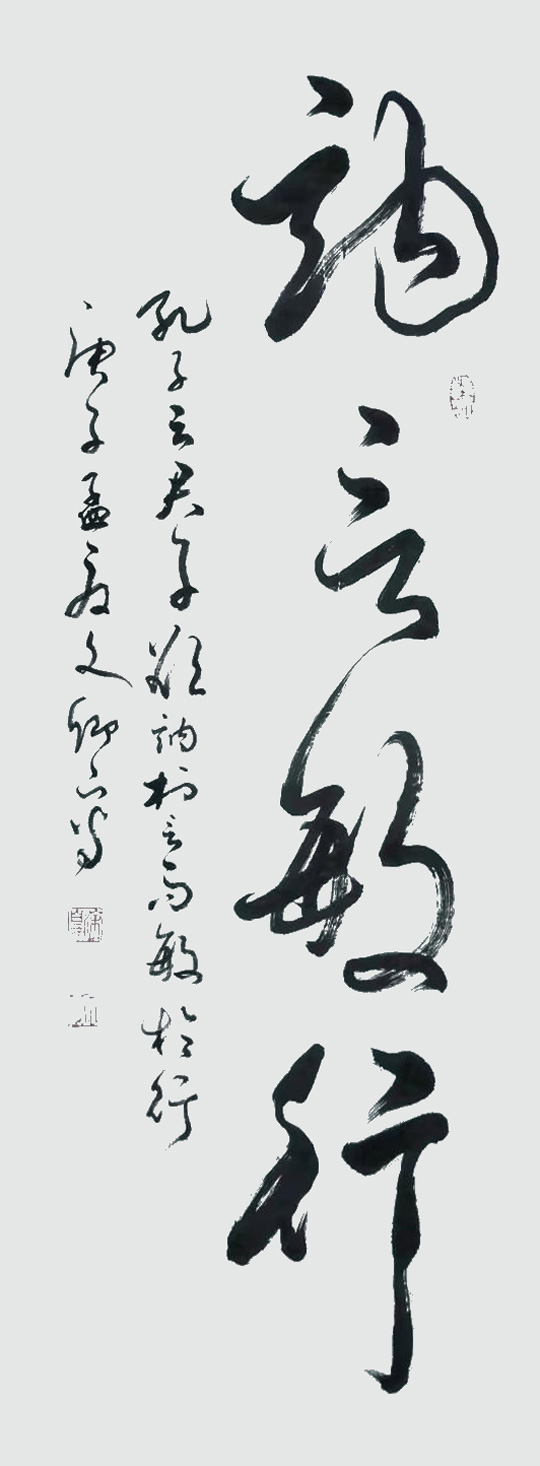 訥言敏行
孔子云君子欲訥於言而敏於行
庚子孟夏文卿书